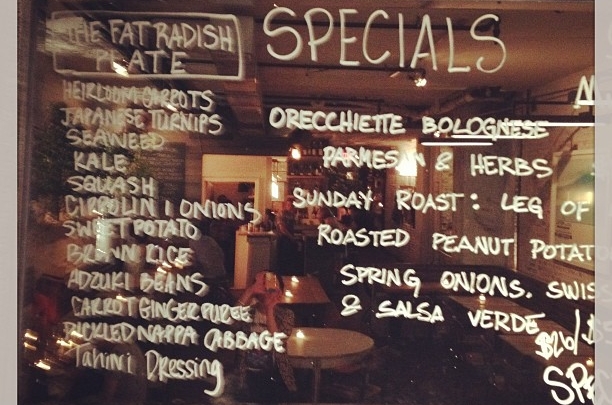 THE FAT RADISH
PLATE
HEIRLOOM CARROTS
JAPANESE TURNIPS
SEAWEED
KALE
SQUASH
CIPPOLINI ONIONS
SWEET POTATO
BROWN RICE
ADZUKI BEANS
CARROT GINGER PUREE
PICKLED NAPPA CABBAGE
Tahini Dressing
SPECIALS
N
ORECCHIETTE BOLOGNESE
PARMESAN & HERBS
SUNDAY. ROAST: LEG OF
ROASTED PEANUT POTAT
SPRING ONIONS. SWIS
& SALSA VERDE
$26/$
SPE